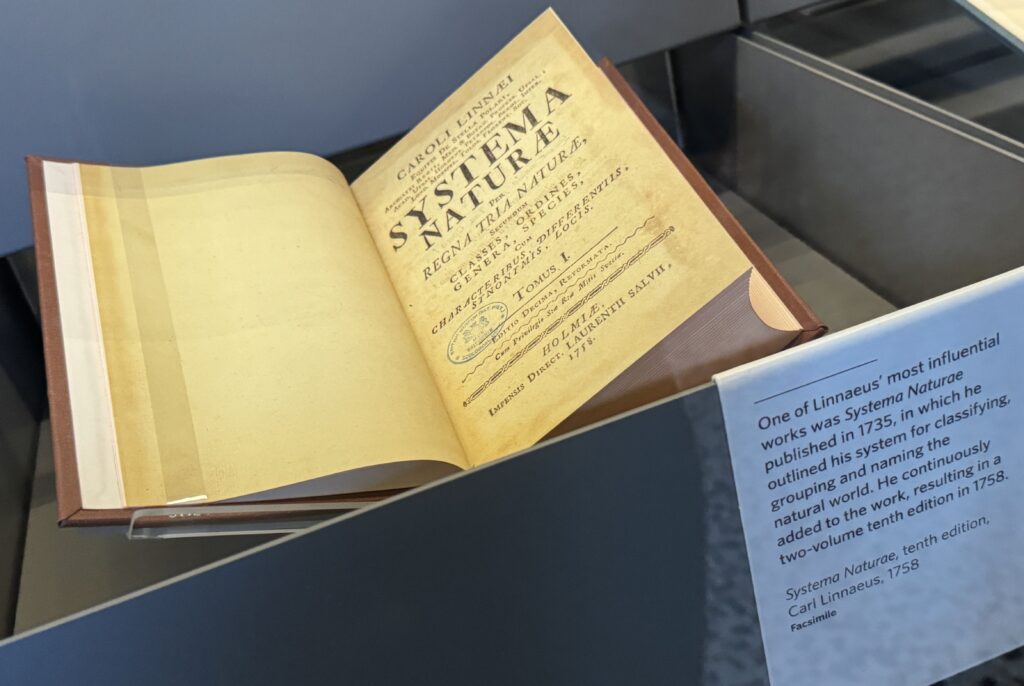 CAROLI LINNÆI
EQUITIS DE STELLA POLARI,
SYSTEMA
NATURÆ
PER
REGNA TRIA NATURÆ,
SECUNDUM
CLASSES, ORDINES,
GENERA, SPECIES,
CUM
CHARACTERIBUS, DIFFERENTIIS,
SYNONYMIS, LOCIS.
TOMUS I.
EDITIO DECIMA, REFORMATA.
Cum Privilegio
HOLMIÆ,
IMPENSIS DIRECT. LAURENTII SALVII,
1758.
One of Linnaeus' most influential
works was Systema Naturae
published in 1735, in which he
outlined his system for classifying,
grouping and naming the
natural world. He continuously
added to the work, resulting in a
two-volume tenth edition in 1758.
Systema Naturae, tenth edition,
Carl Linnaeus, 1758
Facsimile